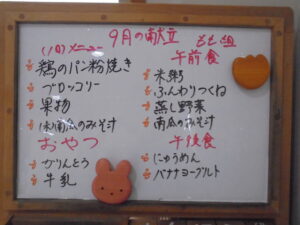 9月の献立
(1日)メニュー
鶏のパン粉焼き
ブロッコリー
果物
南瓜のみそ汁
おやつ
かりんとう
牛乳
もも組
午前食
米粥
ふんわりつくね
蒸し野菜
南瓜のみそ汁
午後食
にゅうめん
バナナヨーグルト